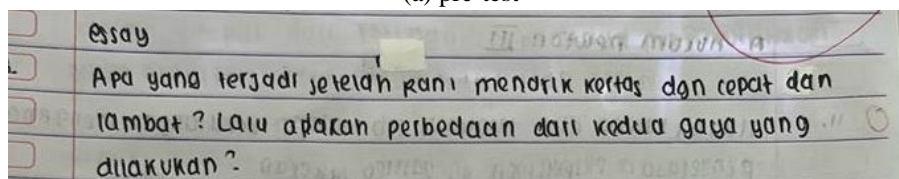 (a) pre-test
essay
Apa yang terjadi setelah Rani menarik kertas dgn cepat dan
lambat? Lalu adakah perbedaan dari kedua gaya yang
dilakukan?